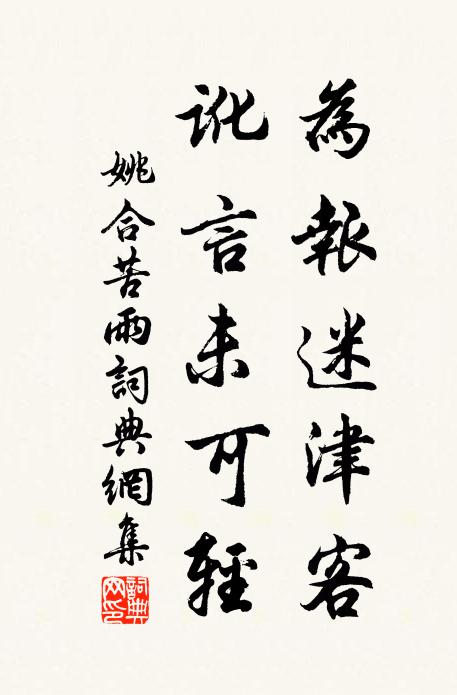 為報迷津客
訛言未可輕
姚合苦雨詞典網集
詞典網印